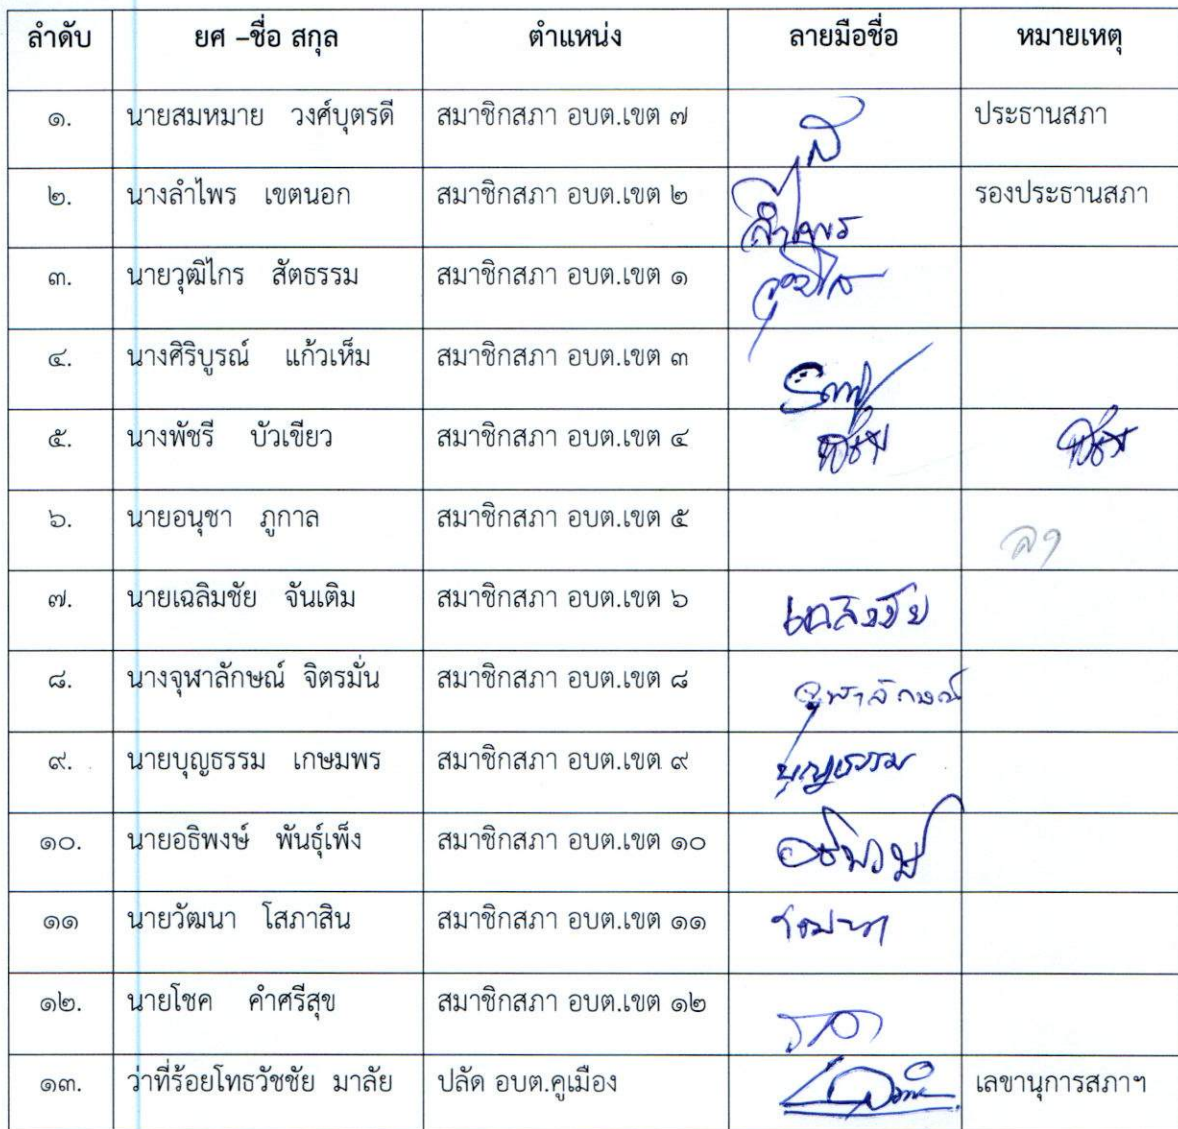 ลำดับ ยศ –ชื่อ สกุล ตำแหน่ง ลายมือชื่อ หมายเหตุ
๑. นายสมหมาย วงศ์บุตรดี สมาชิกสภา อบต.เขต ๗ ประธานสภา
๒. นางลำไพร เขตนอก สมาชิกสภา อบต.เขต ๒ ลำไพร รองประธานสภา
๓. นายวุฒิไกร สัตธรรม สมาชิกสภา อบต.เขต ๑
๔. นางศิริบูรณ์ แก้วเห็ม สมาชิกสภา อบต.เขต ๓
๕. นางพัชรี บัวเขียว สมาชิกสภา อบต.เขต ๔
๖. นายอนุชา ภูกาล สมาชิกสภา อบต.เขต ๕ ลา
๗. นายเฉลิมชัย จันเติม สมาชิกสภา อบต.เขต ๖ เฉลิมชัย
๘. นางจุฬาลักษณ์ จิตรมั่น สมาชิกสภา อบต.เขต ๘ จุฬาลักษณ์
๙. นายบุญธรรม เกษมพร สมาชิกสภา อบต.เขต ๙ บุญธรรม
๑๐. นายอธิพงษ์ พันธุ์เพ็ง สมาชิกสภา อบต.เขต ๑๐
๑๑ นายวัฒนา โสภาสิน สมาชิกสภา อบต.เขต ๑๑
๑๒. นายโชค คำศรีสุข สมาชิกสภา อบต.เขต ๑๒
๑๓. ว่าที่ร้อยโทธวัชชัย มาลัย ปลัด อบต.คูเมือง เลขานุการสภาฯ